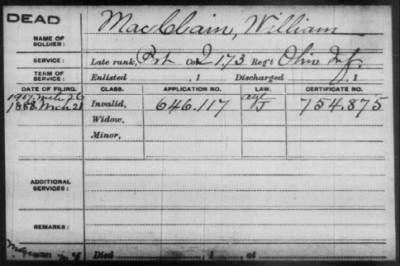 DEAD
NAME OF SOLDIER: MacClain, William
SERVICE: Late rank, Pvt Co. I 173 Reg't Ohio Inf.
TERM OF SERVICE: Enlisted , 1 Discharged , 1
DATE OF FILING. CLASS. APPLICATION NO. LAW. CERTIFICATE NO.
1888 Mch 21 Invalid, 646.117 J 754.875
Widow,
Minor,
ADDITIONAL SERVICES:
REMARKS:
Died , 1 at